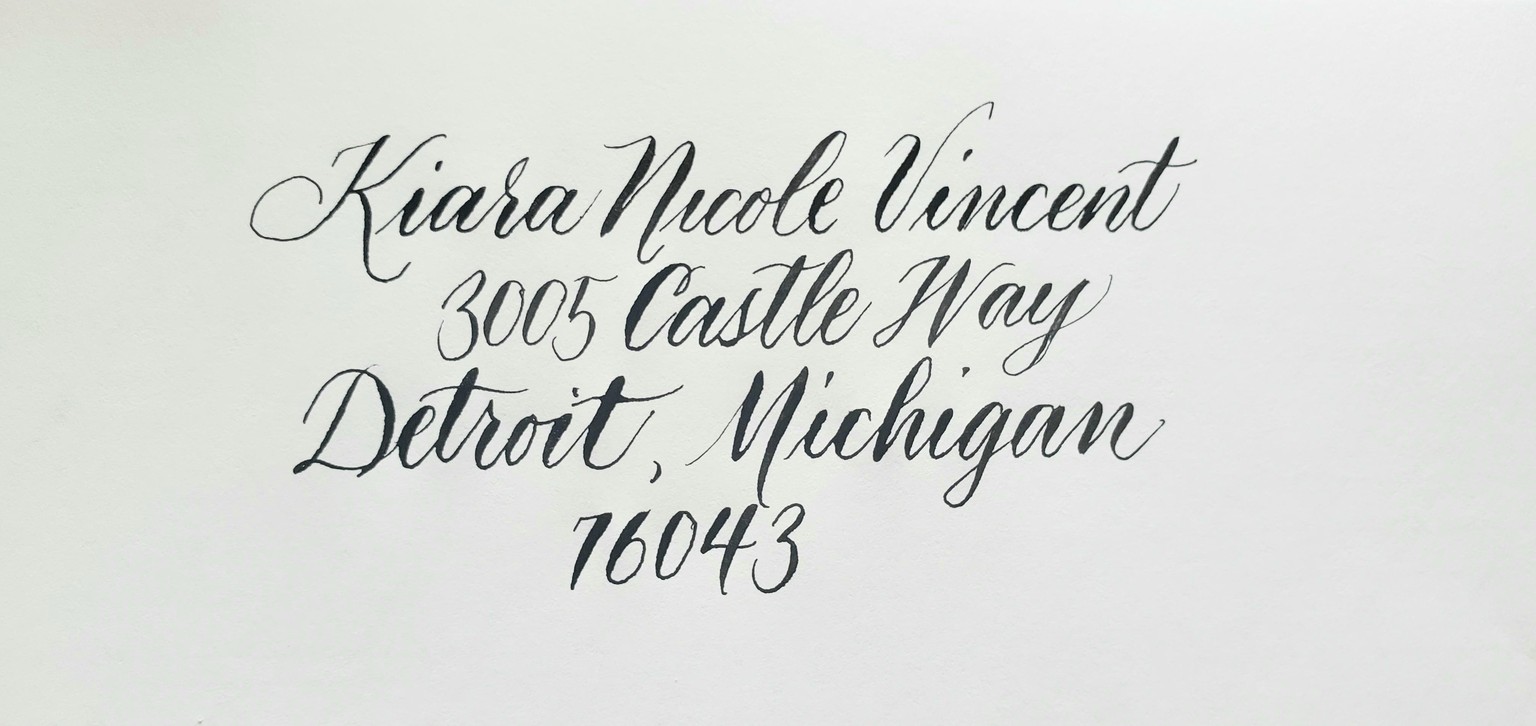 Kiara Nicole Vincent
3005 Castle Way
Detroit, Michigan
76043